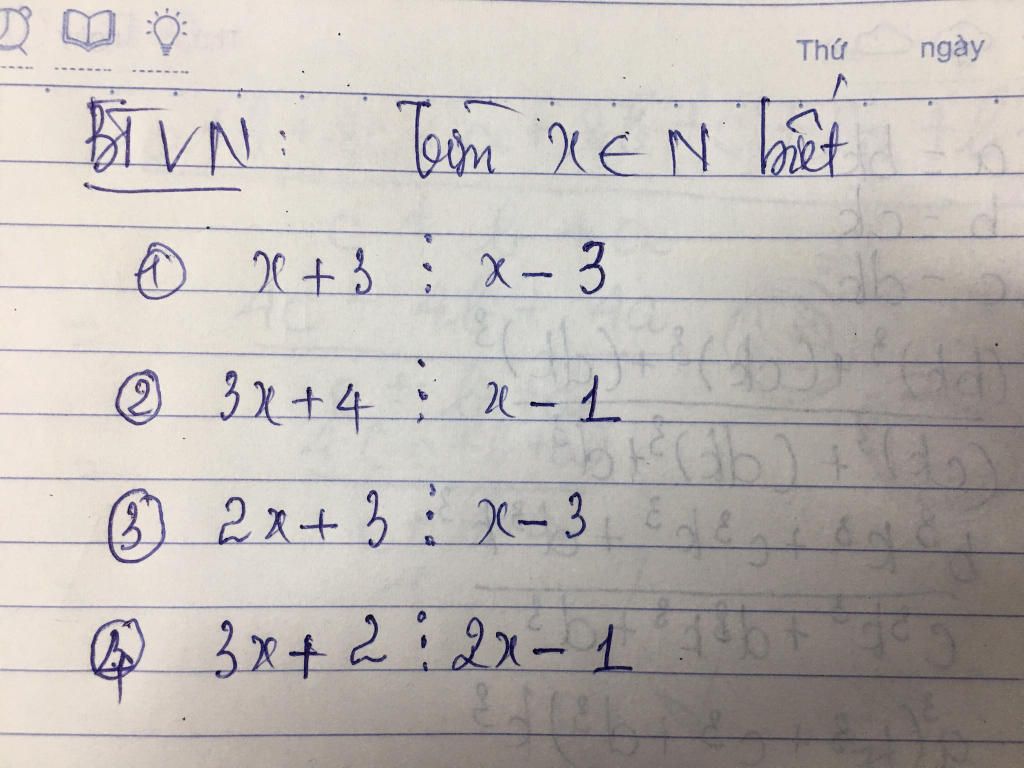 Thứ ngày
BTVN: Tìm x ∈ N biết
① x + 3 ⋮ x - 3
② 3x + 4 ⋮ x - 1
③ 2x + 3 ⋮ x - 3
④ 3x + 2 ⋮ 2x - 1